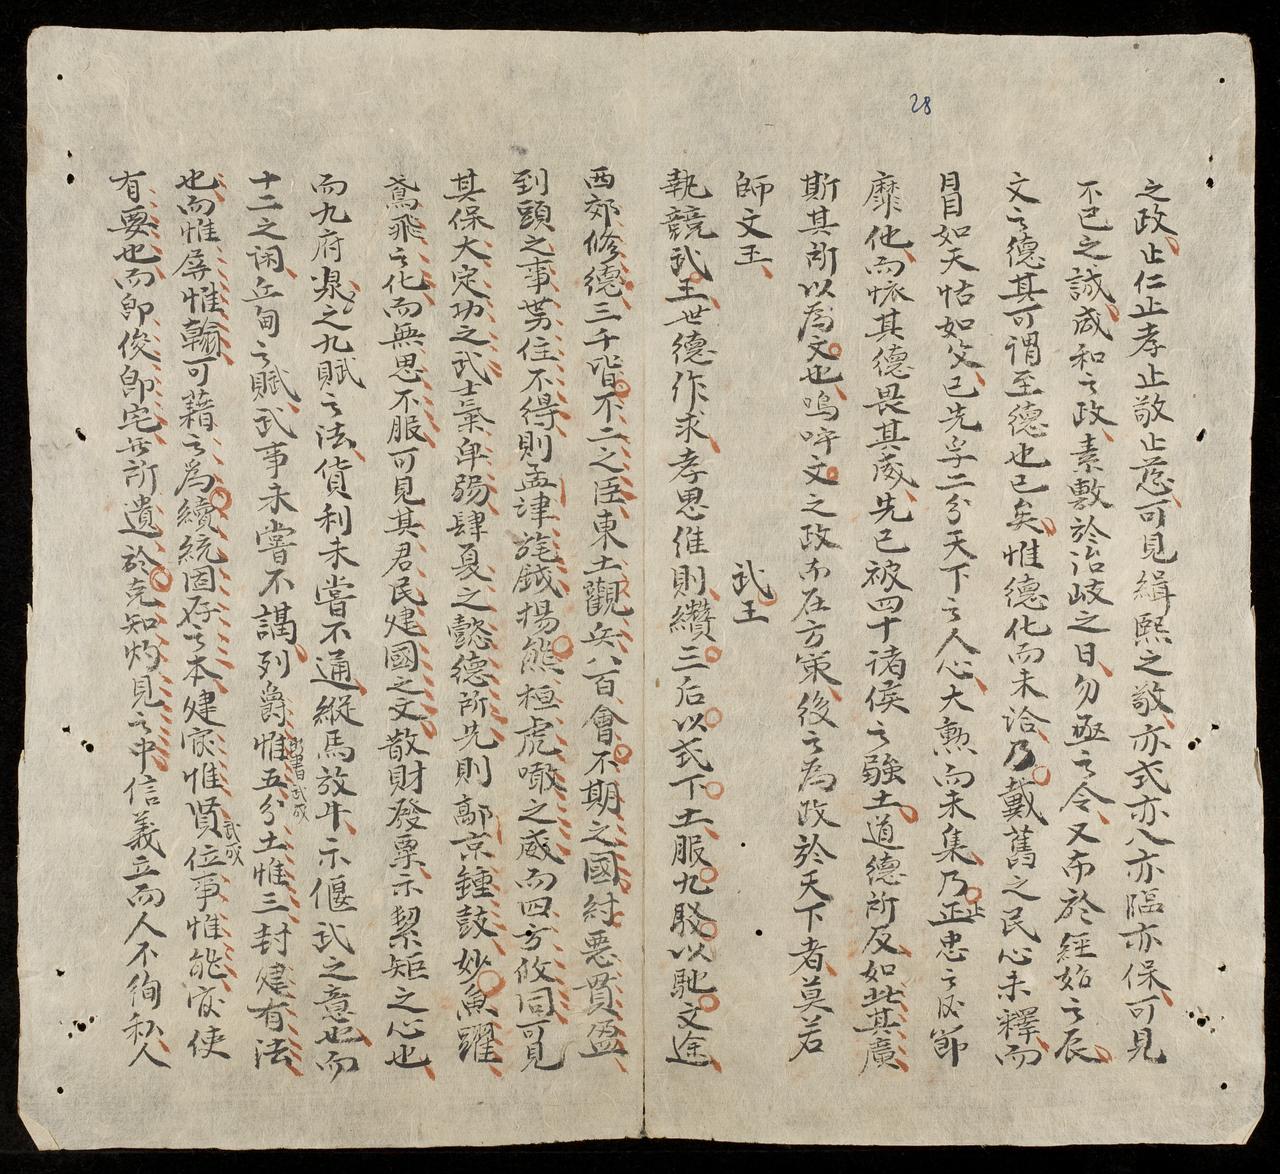 28
之政止仁止孝止敬止慈可見緝熙之敬亦式亦入亦臨亦保可見
不已之誠咸和之政素敷於治岐之日勿亟之令又布於經始之辰
文之德其可謂至德也已矣惟德化而未洽乃戴舊之民心未釋而
冒如天怙如父已先孚二分天下之人心大勲而未集乃止忠之反節
靡他而懷其德畏其威先已被四十诸侯之強土道德所及如此其廣
斯其所以為文也嗚呼文之政布在方策後之為政於天下者莫若
師文王
武王
執競武王世德作求孝思維則纘三后以式下土服九服以馳文途
西郊修德三千皆不二之臣東土觀兵八百會不期之國紂惡貫盈
到頭之事势住不得則孟津旄鉞揚熊桓虎噉之威而四方攸同可見
其保大定功之武士氣卑弱肆夏之懿德所先則鄗京鍾鼓妙魚躍
鳶飛之化而無思不服可見其君民建國之文散財發粟示絜矩之心也
而九府泉之九賦之法貨利未嘗不通縱馬放牛示偃武之意也而
十二之闲丘甸之賦武事未嘗不講列爵惟五分土惟三封建有法
書武成
也而惟屏惟翰可藉之為續統因存之本建官惟賢位事惟能官使
武成
有要也而卽俊卽宅無所遺於克知灼見之中信義立而人不徇私人